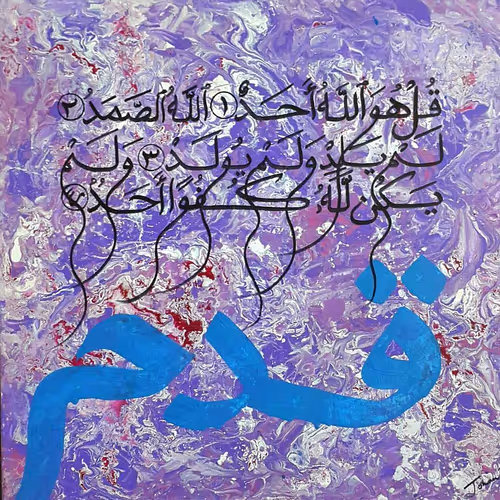 قُلْ هُوَ ٱللَّهُ أَحَدٌ ١ ٱللَّهُ ٱلصَّمَدُ ٢
لَمْ يَلِدْ وَلَمْ يُولَدْ ٣ وَلَمْ
يَكُنْ لَّلهُ كُفُوًا أَحَدٌ ٤
قدم